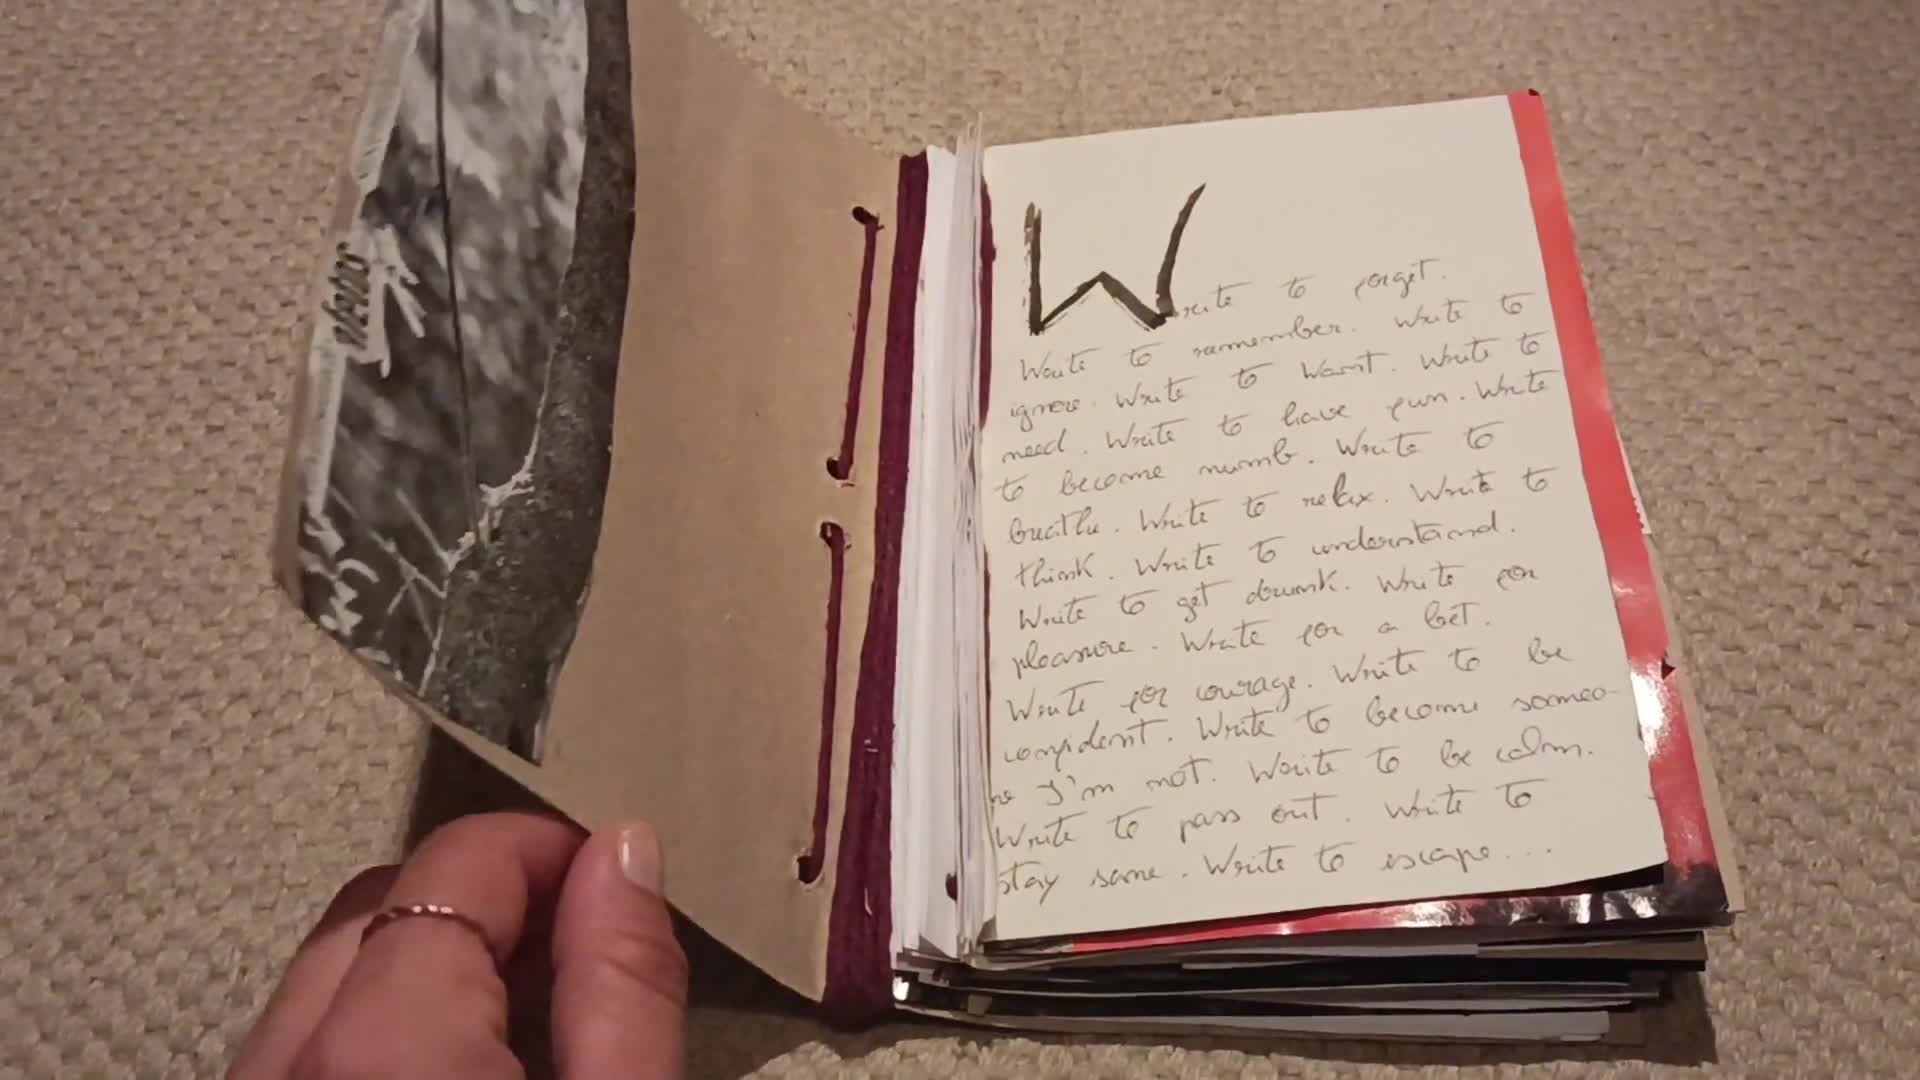 Write to forget.
Write to remember. Write to
ignore. Write to want. Write to
need. Write to have fun. Write
to become numb. Write to
breathe. Write to relax. Write to
think. Write to understand.
Write to get drunk. Write for
pleasure. Write for a bet.
Write for courage. Write to be
confident. Write to become someo-
ne I'm not. Write to be calm.
Write to pass out. Write to
stay sane. Write to escape...